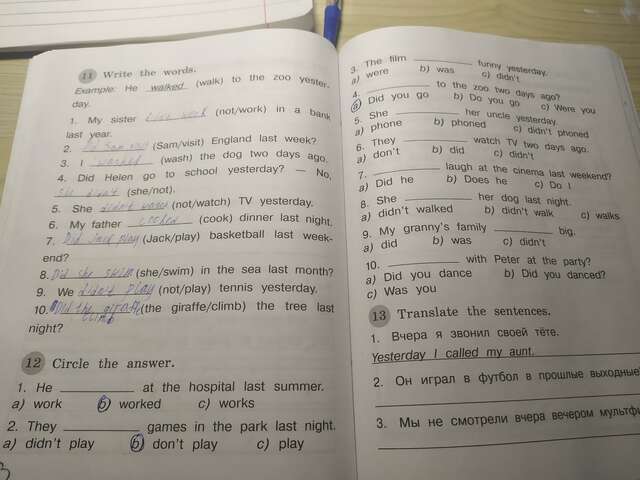 11 Write the words.
Example: He walked (walk) to the zoo yester-
day.
1. My sister work (not/work) in a bank
last year.
2. Did Sam visit (Sam/visit) England last week?
3. I washed (wash) the dog two days ago.
4. Did Helen go to school yesterday? — No,
she didn't (she/not).
5. She didn't (not/watch) TV yesterday.
6. My father cooked (cook) dinner last night.
7. Did Jack play (Jack/play) basketball last week-
end?
8. Did she swim (she/swim) in the sea last month?
9. We didn't play (not/play) tennis yesterday.
10. Did the giraffe (the giraffe/climb) the tree last
climb
night?
12 Circle the answer.
1. He ________ at the hospital last summer.
a) work b) worked c) works
2. They ________ games in the park last night.
a) didn't play b) don't play c) play
3. The film ________ funny yesterday.
a) were b) was c) didn't
4. ________ to the zoo two days ago?
a) Did you go b) Do you go c) Were you
5. She ________ her uncle yesterday.
a) phone b) phoned c) didn't phoned
6. They ________ watch TV two days ago.
a) don't b) did c) didn't
7. ________ laugh at the cinema last weekend?
a) Did he b) Does he c) Do I
8. She ________ her dog last night.
a) didn't walked b) didn't walk c) walks
9. My granny's family ________ big.
a) did b) was c) didn't
10. ________ with Peter at the party?
a) Did you dance b) Did you danced?
c) Was you
13 Translate the sentences.
1. Вчера я звонил своей тёте.
Yesterday I called my aunt.
2. Он играл в футбол в прошлые выходные
3. Мы не смотрели вчера вечером мультф